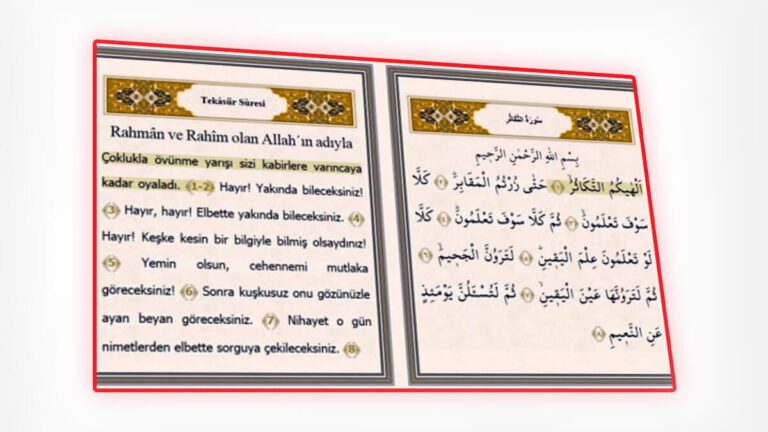 Tekâsür Sûresi
Rahmân ve Rahîm olan Allah´ın adıyla
Çoklukla övünme yarışı sizi kabirlere varıncaya
kadar oyaladı. ﴾1-2﴿ Hayır! Yakında bileceksiniz!
﴾3﴿ Hayır, hayır! Elbette yakında bileceksiniz. ﴾4﴿
Hayır! Keşke kesin bir bilgiyle bilmiş olsaydınız!
﴾5﴿ Yemin olsun, cehennemi mutlaka
göreceksiniz! ﴾6﴿ Sonra kuşkusuz onu gözünüzle
ayan beyan göreceksiniz. ﴾7﴿ Nihayet o gün
nimetlerden elbette sorguya çekileceksiniz. ﴾8﴿
سُورَةُ التَّكَاثُرِ
بِسْمِ اللهِ الرَّحْمٰنِ الرَّحٖيمِ
اَلْهٰيكُمُ التَّكَاثُرُۙ ﴿١﴾ حَتّٰى زُرْتُمُ الْمَقَابِرَؕ ﴿٢﴾ كَلَّا
سَوْفَ تَعْلَمُونَۙ ﴿٣﴾ ثُمَّ كَلَّا سَوْفَ تَعْلَمُونَؕ ﴿٤﴾ كَلَّا
لَوْ تَعْلَمُونَ عِلْمَ الْيَقٖينِؕ ﴿٥﴾ لَتَرَوُنَّ الْجَحٖيمَۙ ﴿٦﴾
ثُمَّ لَتَرَوُنَّهَا عَيْنَ الْيَقٖينِۙ ﴿٧﴾ ثُمَّ لَتُسْـَٔلُنَّ يَوْمَئِذٍ
عَنِ النَّعٖيمِ ﴿٨﴾